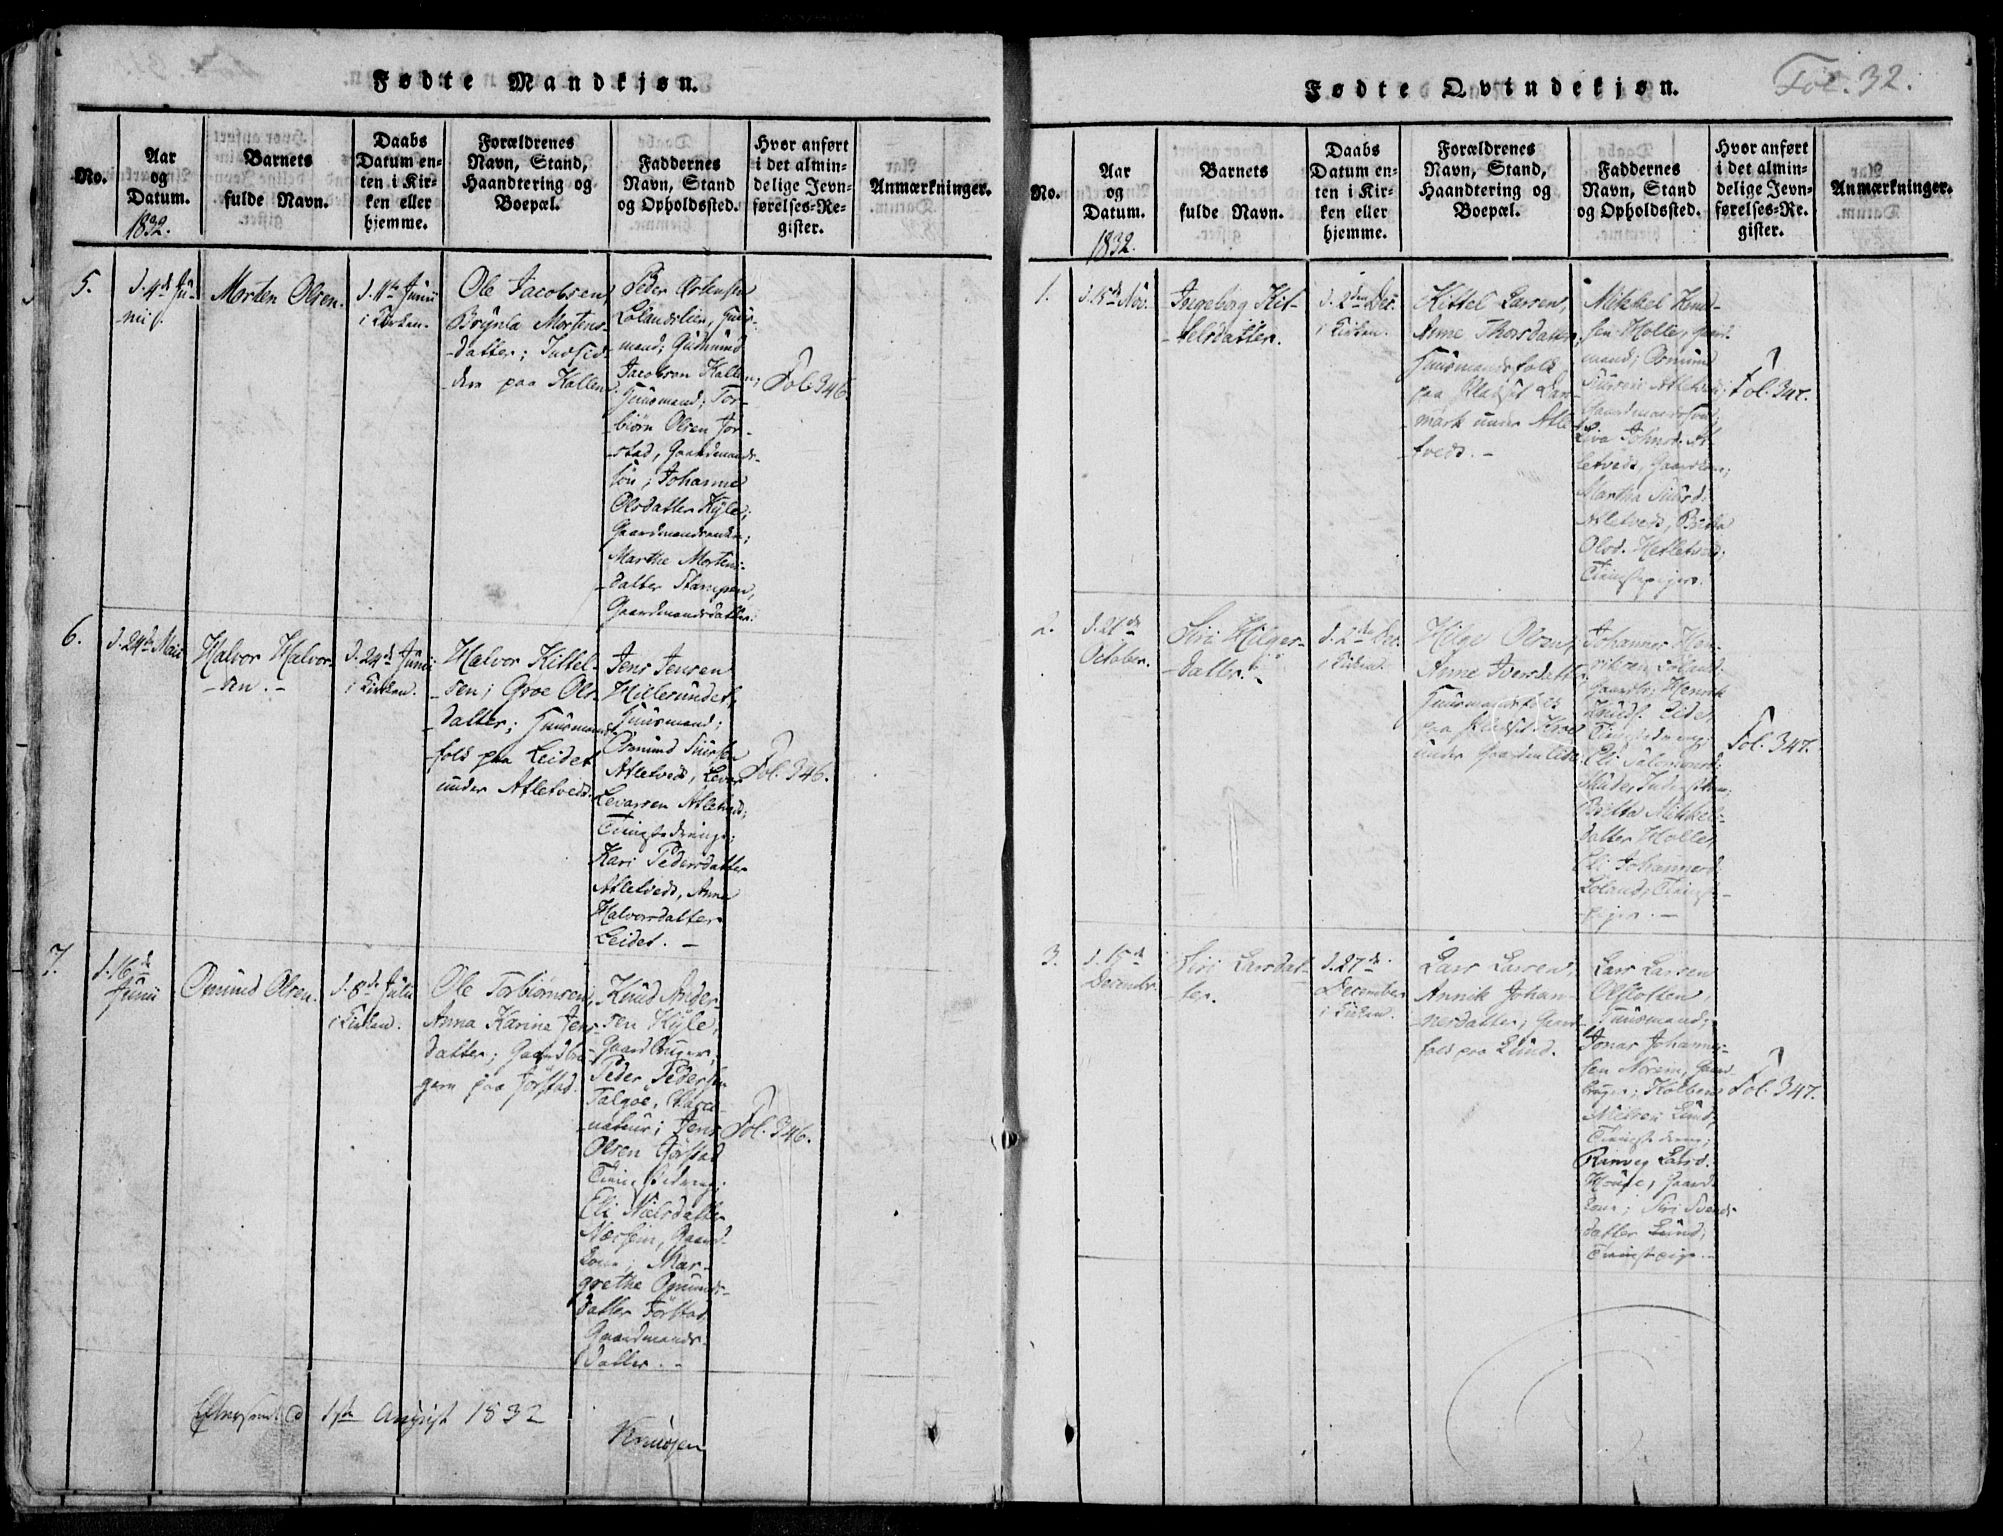 Fødte Mandkjøn.
No.
Aar
og
Datum.
1832.
Barnets
fulde Navn.
Daabs
Datum en-
ten i Kir-
ken eller
hjemme.
Forældrenes
Navn, Stand,
Haandtering og
Boepæl.
Faddernes
Navn, Stand
og Opholdssted.
Hvor anført
i det almin-
delige Jevn-
førelses-Re-
gister.
Anmærkninger.
5.
d. 4de Ju-
nii
Morten Olsen.
d. 11te Junii
i Kirken.
Ole Jacobsen,
Brynla Mortens-
datter; Indsid-
dere paa Hallen.
Peder
Lølandslien, Huus-
mand; Gudmund
Jacobsen Hallen,
Huusmand; Tor-
biørn Olsen Jør-
stad, Gaardmands-
søn; Johanne
Olsdatter Kyle,
Gaardmandsenke;
Marthe Mortens-
datter Stangen,
Gaardmandsdatter.
Fol. 346.
6.
d. 24de Maii
Halvor Halvor-
sen. -
d. 24de Junii
i Kirken.
Halvor Kittel-
sen; Groe Ols-
datter; Huusmands-
folk paa Leidet
under Atletveds.
Jens Jensen
Hillesundet,
Huusmand;
Osmund Siursen
Atletveds, Levar
Levarsen Atletveds;
Tienestedrenge;
Kari Pedersdatter
Atletveds, Anne
Halvorsdatter
Leidet. -
Fol. 346.
7.
d. 16de
Junii
Omund Olsen.
d. 8de Julii
i Kirken.
Ole Torbiørnsen,
Anna Karine Jens-
datter; Gaardbru-
gere paa Jørstad.
Knud Ander-
sen Kyle,
Gaardbruger;
Peder Pedersen
Talgøe,
Jens
Olsen Jørstad
Tienestedreng;
Eli Nielsdatter
Nærhein, Gaard-
kone; Mar-
grethe Omunds-
datter Jørstad
Gaardmands-
datter. -
Fol. 346.
1ste August 1832
Fødte Qvindekjøn.
Fol. 32.
No.
Aar
og
Datum.
1832.
Barnets
fulde Navn.
Daabs
Datum en-
ten i Kir-
ken eller
hjemme.
Forældrenes
Navn, Stand,
Haandtering og
Boepæl.
Faddernes
Navn, Stand
og Opholdssted.
Hvor anført
i det almin-
delige Jevn-
førelses-Re-
gister.
Anmærkninger.
1.
Nov.
Ingeborg Kit-
telsdatter.
d. 2den Dec.
i Kirken.
Kittel Larsen,
Anne Thorsdatter,
Huusmandsfolk
paa Pladset
under Atle-
tveds. -
Mikkel Knud-
sen Holle,
mand; Osmund
Siursen Atletveds,
Gaardmandssøn;
Siva Johnsd. At-
letveds, Gaardkone;
Martha Siursd.
Atletveds, Britha
Olsd. Hetletveds;
Tienestepiger.
Fol. 347.
2.
d. 21de
October.
Siri Hilger-
datter.
d. 2den Dec.
i Kirken.
Hilge Olsen,
Anne Iversdatter,
Huusmandsfolk
paa Pladset
under Gaarden Eide.
Johannes Hen-
riksen Løland,
Henrik
Knuds. Eide,
Tienestedreng;
Eli
Britta Mikkels-
datter Holle,
Eli Johannesd.
Løland, Tieneste-
piger. -
Fol. 347.
3.
d. 15de
December.
Siri Larsdat-
ter.
d. 27de
December
i Kirken.
Lars Larsen,
Annik Johan-
nesdatter; Gaard-
folk paa Lund.
Lars Larsen
Huusmand;
Jonas Johannes-
sen Norem, Gaard-
bruger; Kolben
Nielsen Lund,
Tienestedreng;
Ranveg Larsd.
Houge, Gaard-
kone; Siri Svends-
datter Lund,
Tienestepige. -
Fol. 347.